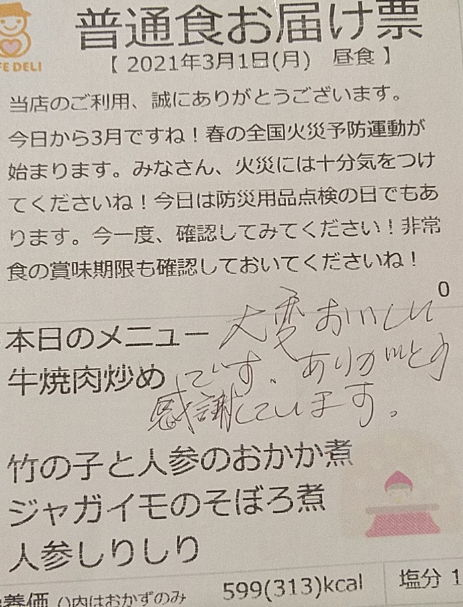 FE DELI
普通食お届け票
【 2021年3月1日(月)　昼食 】
当店のご利用、誠にありがとうございます。
今日から3月ですね！春の全国火災予防運動が
始まります。みなさん、火災には十分気をつけ
てくださいね！今日は防災用品点検の日でもあ
ります。今一度、確認してみてください！非常
食の賞味期限も確認しておいてくださいね！
0
本日のメニュー
大変おいしい
牛焼肉炒め
です。ありがとう
感謝しています。
竹の子と人参のおかか煮
ジャガイモのそぼろ煮
人参しりしり
養価 ()内はおかずのみ 599(313)kcal 塩分 1